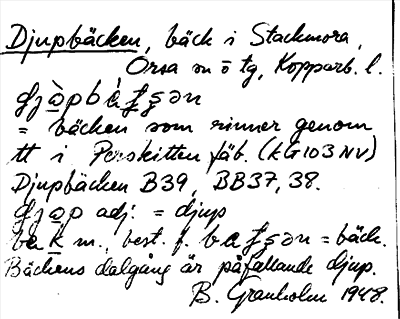 Djupbäcken, bäck i Stackmora,
Orsa sn ö tg, Kopparb. l.
= bäcken som rinner genom
tt i Perskitten fäb. (KG103NV)
Djupbäcken B39, BB37, 38.
adj. = djup
m., best. f. = bäck.
Bäckens dalgång är påfallande djup.
B. Granholm 1948.